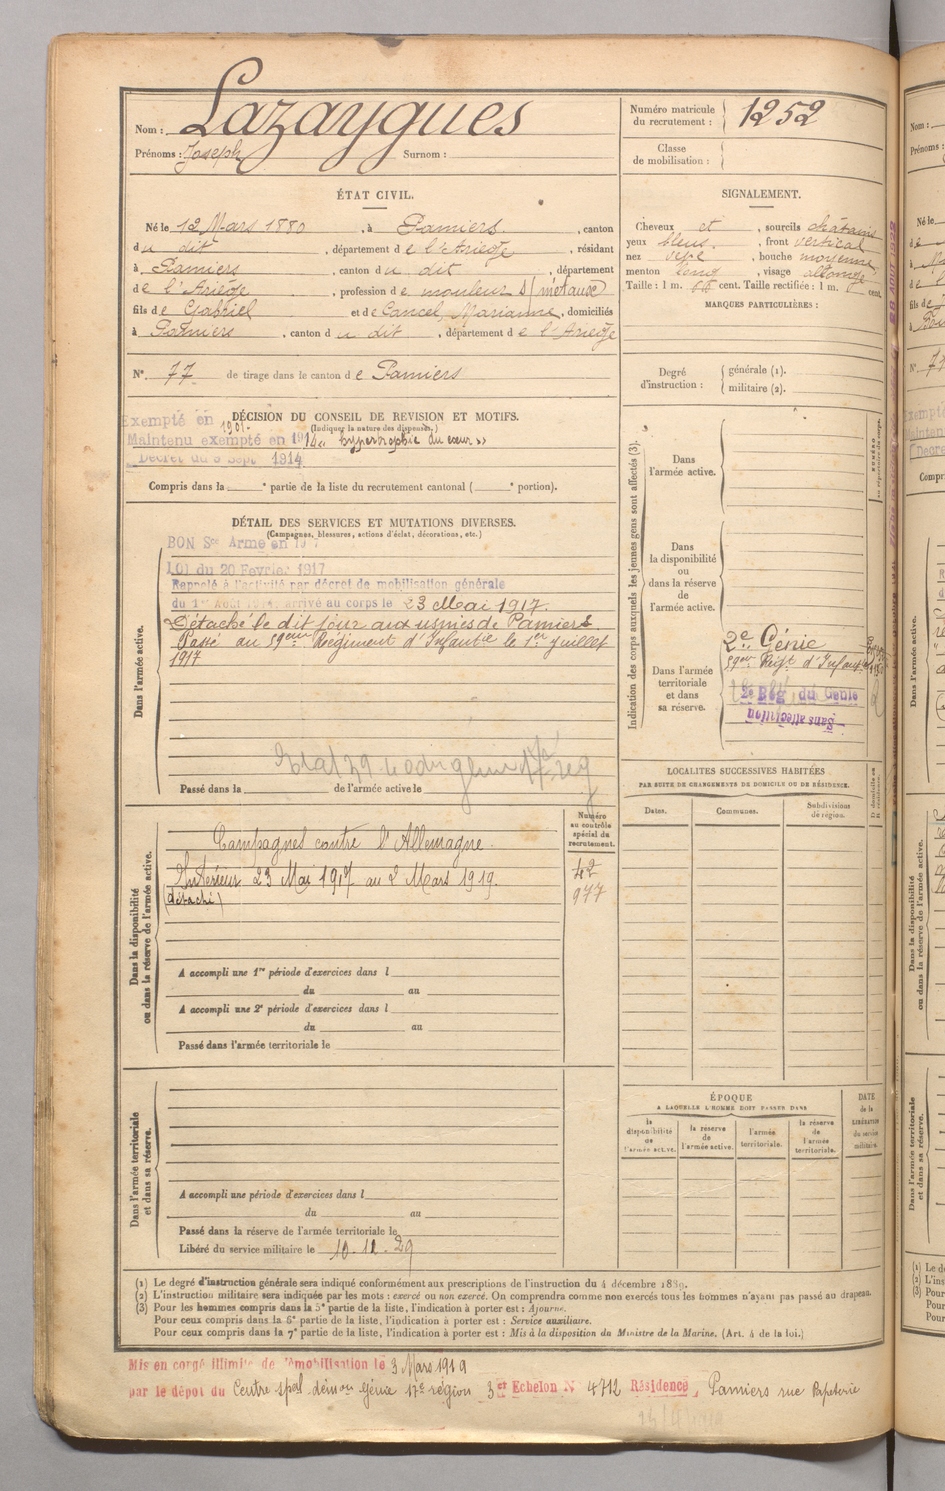 Nom : Lazaygues
Prénoms : Joseph Surnom :
Numéro matricule du recrutement : 1252
Classe de mobilisation :
ÉTAT CIVIL.
Né le 12 Mars 1880, à Pamiers, canton
du dit, département de l'Ariège, résidant
à Pamiers, canton du dit, département
de l'Ariège, profession de mouleur s/ métaux
fils de Gabriel et de Cancel, Marianne, domiciliés
à Pamiers, canton du dit, département de l'Ariège
N° 77 de tirage dans le canton de Pamiers
SIGNALEMENT.
Cheveux et, sourcils châtains
yeux bleus, front vertical
nez, bouche moyenne,
menton long, visage allongé
Taille : 1 m. 66 cent. Taille rectifiée : 1 m. cent.
MARQUES PARTICULIÈRES :
Degré d'instruction : générale (1).
militaire (2).
DÉCISION DU CONSEIL DE REVISION ET MOTIFS.
(Indiquer la nature des dispenses.)
Exempté en 1901.
Maintenu exempté en 1914 « hypertrophie du cœur »
Décret du 9 Sept 1914
Compris dans la e partie de la liste du recrutement cantonal ( e portion).
DÉTAIL DES SERVICES ET MUTATIONS DIVERSES.
(Campagnes, blessures, actions d'éclat, décorations, etc.)
Dans l'armée active.
BON Sce Armé en 1917
Loi du 20 Février 1917
Rappelé à l'activité par décret de mobilisation générale
du 1er Août 1914. arrivé au corps le 23 Mai 1917.
Détaché le dit jour aux usines de Pamiers.
Passé au 59eme Régiment d'Infanterie le 1er Juillet
1917
Passé dans la de l'armée active le
Indication des corps auxquels les jeunes gens sont affectés (3).
Dans l'armée active.
Dans la disponibilité ou dans la réserve de l'armée active.
Dans l'armée territoriale et dans sa réserve.
2e Génie
59eme Régt d'Infant
2e Rég du Génie
Sans affectation
LOCALITES SUCCESSIVES HABITÉES
PAR SUITE DE CHANGEMENTS DE DOMICILE OU DE RÉSIDENCE.
Dates. Communes. Subdivisions de région.
Dans la disponibilité ou dans la réserve de l'armée active.
Numéro au contrôle spécial du recrutement.
Campagnes contre l'Allemagne.
Intérieur 23 Mai 1917 au 2 Mars 1919.
(détaché)
42
977
A accompli une 1re période d'exercices dans l
du au
A accompli une 2e période d'exercices dans l
du au
Passé dans l'armée territoriale le
ÉPOQUE
A LAQUELLE L'HOMME DOIT PASSER DANS
la disponibilité de l'armée active.
la réserve de l'armée active.
l'armée territoriale.
la réserve de l'armée territoriale.
DATE de la LIBÉRATION du service militaire.
Dans l'armée territoriale et dans sa réserve.
A accompli une période d'exercices dans l
du au
Passé dans la réserve de l'armée territoriale le
Libéré du service militaire le 10.11.29
(1) Le degré d'instruction générale sera indiqué conformément aux prescriptions de l'instruction du 4 décembre 1889.
(2) L'instruction militaire sera indiquée par les mots : exercé ou non exercé. On comprendra comme non exercés tous les hommes n'ayant pas passé au drapeau.
(3) Pour les hommes compris dans la 5e partie de la liste, l'indication à porter est : Ajourné.
Pour ceux compris dans la 6e partie de la liste, l'indication à porter est : Service auxiliaire.
Pour ceux compris dans la 7e partie de la liste, l'indication à porter est : Mis à la disposition du Ministre de la Marine. (Art. 4 de la loi.)
Mis en congé illimité de démobilisation le 3 Mars 1919
par le dépôt du Centre spal démon Génie 17e région 3er Echelon N° 4712 Résidence, Pamiers rue Papeterie